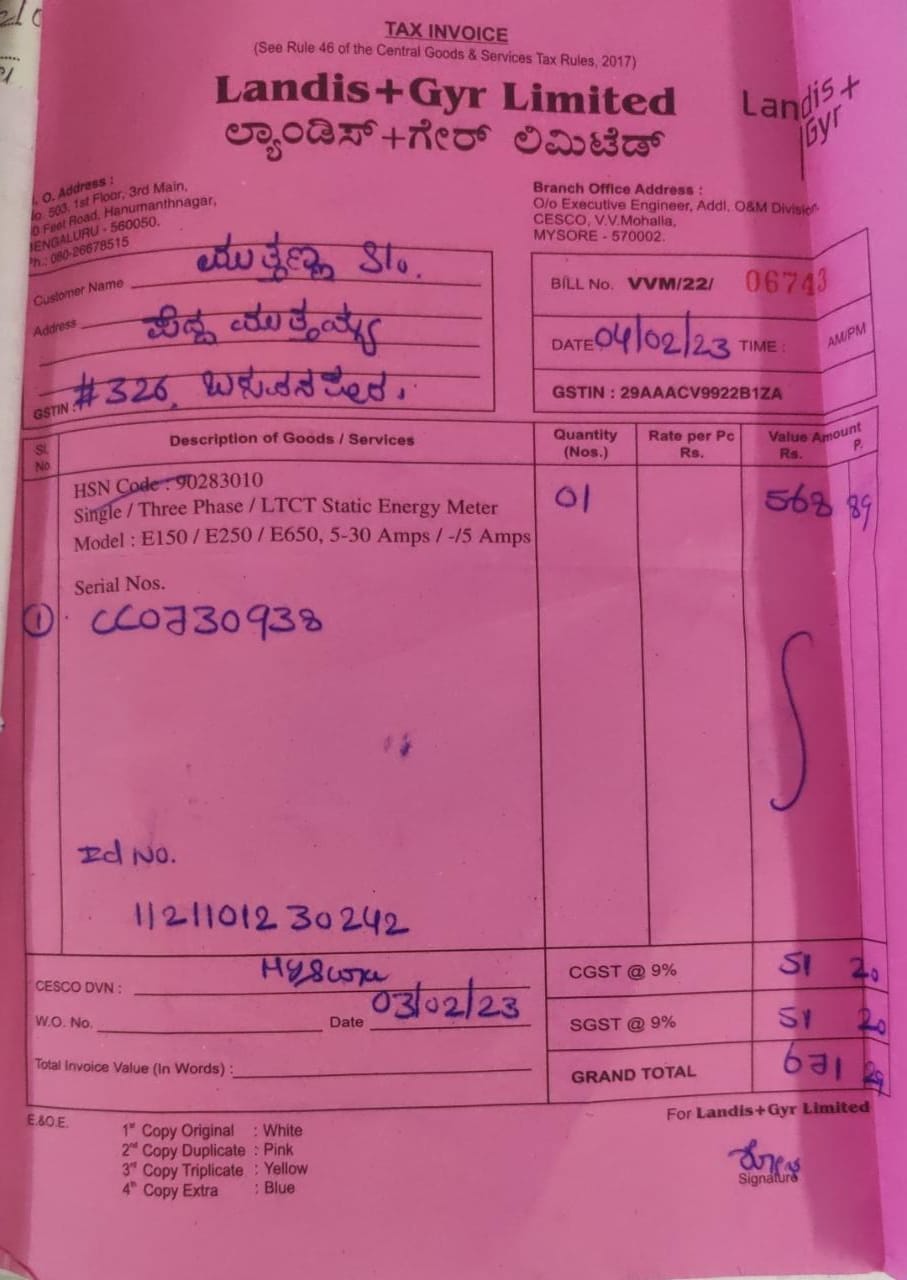 TAX INVOICE
(See Rule 46 of the Central Goods & Services Tax Rules, 2017)
Landis+Gyr Limited
Landis+
Gyr
ಲ್ಯಾಂಡಿಸ್+ಗೇರ್ ಲಿಮಿಟೆಡ್
O. Address :
503, 1st Floor, 3rd Main,
Feet Road, Hanumanthnagar,
BENGALURU - 560050.
Ph.: 080-26678515
Branch Office Address :
O/o Executive Engineer, Addl. O&M Division
CESCO, V.V.Mohalla,
MYSORE - 570002.
Customer Name ಮುತ್ತಣ್ಣ S/o.
Address ಪೆದ್ದ ಮುತ್ತಯ್ಯ
GSTIN : #326,
BILL No. VVM/22/ 06743
DATE 04/02/23 TIME : AM/PM
GSTIN : 29AAACV9922B1ZA
Sl. No. Description of Goods / Services Quantity (Nos.) Rate per Pc Rs. Value Amount Rs. P.
HSN Code : 90283010
Single / Three Phase / LTCT Static Energy Meter 01 568 89
Model : E150 / E250 / E650, 5-30 Amps / -/5 Amps
Serial Nos.
1 CC0730938
Id No.
1121101230242
CESCO DVN : Mysore
W.O. No. Date 03/02/23
Total Invoice Value (In Words) :
CGST @ 9% 51 20
SGST @ 9% 51 20
GRAND TOTAL 671 29
E.&O.E.
For Landis+Gyr Limited
1st Copy Original : White
2nd Copy Duplicate : Pink
3rd Copy Triplicate : Yellow
4th Copy Extra : Blue
Signature